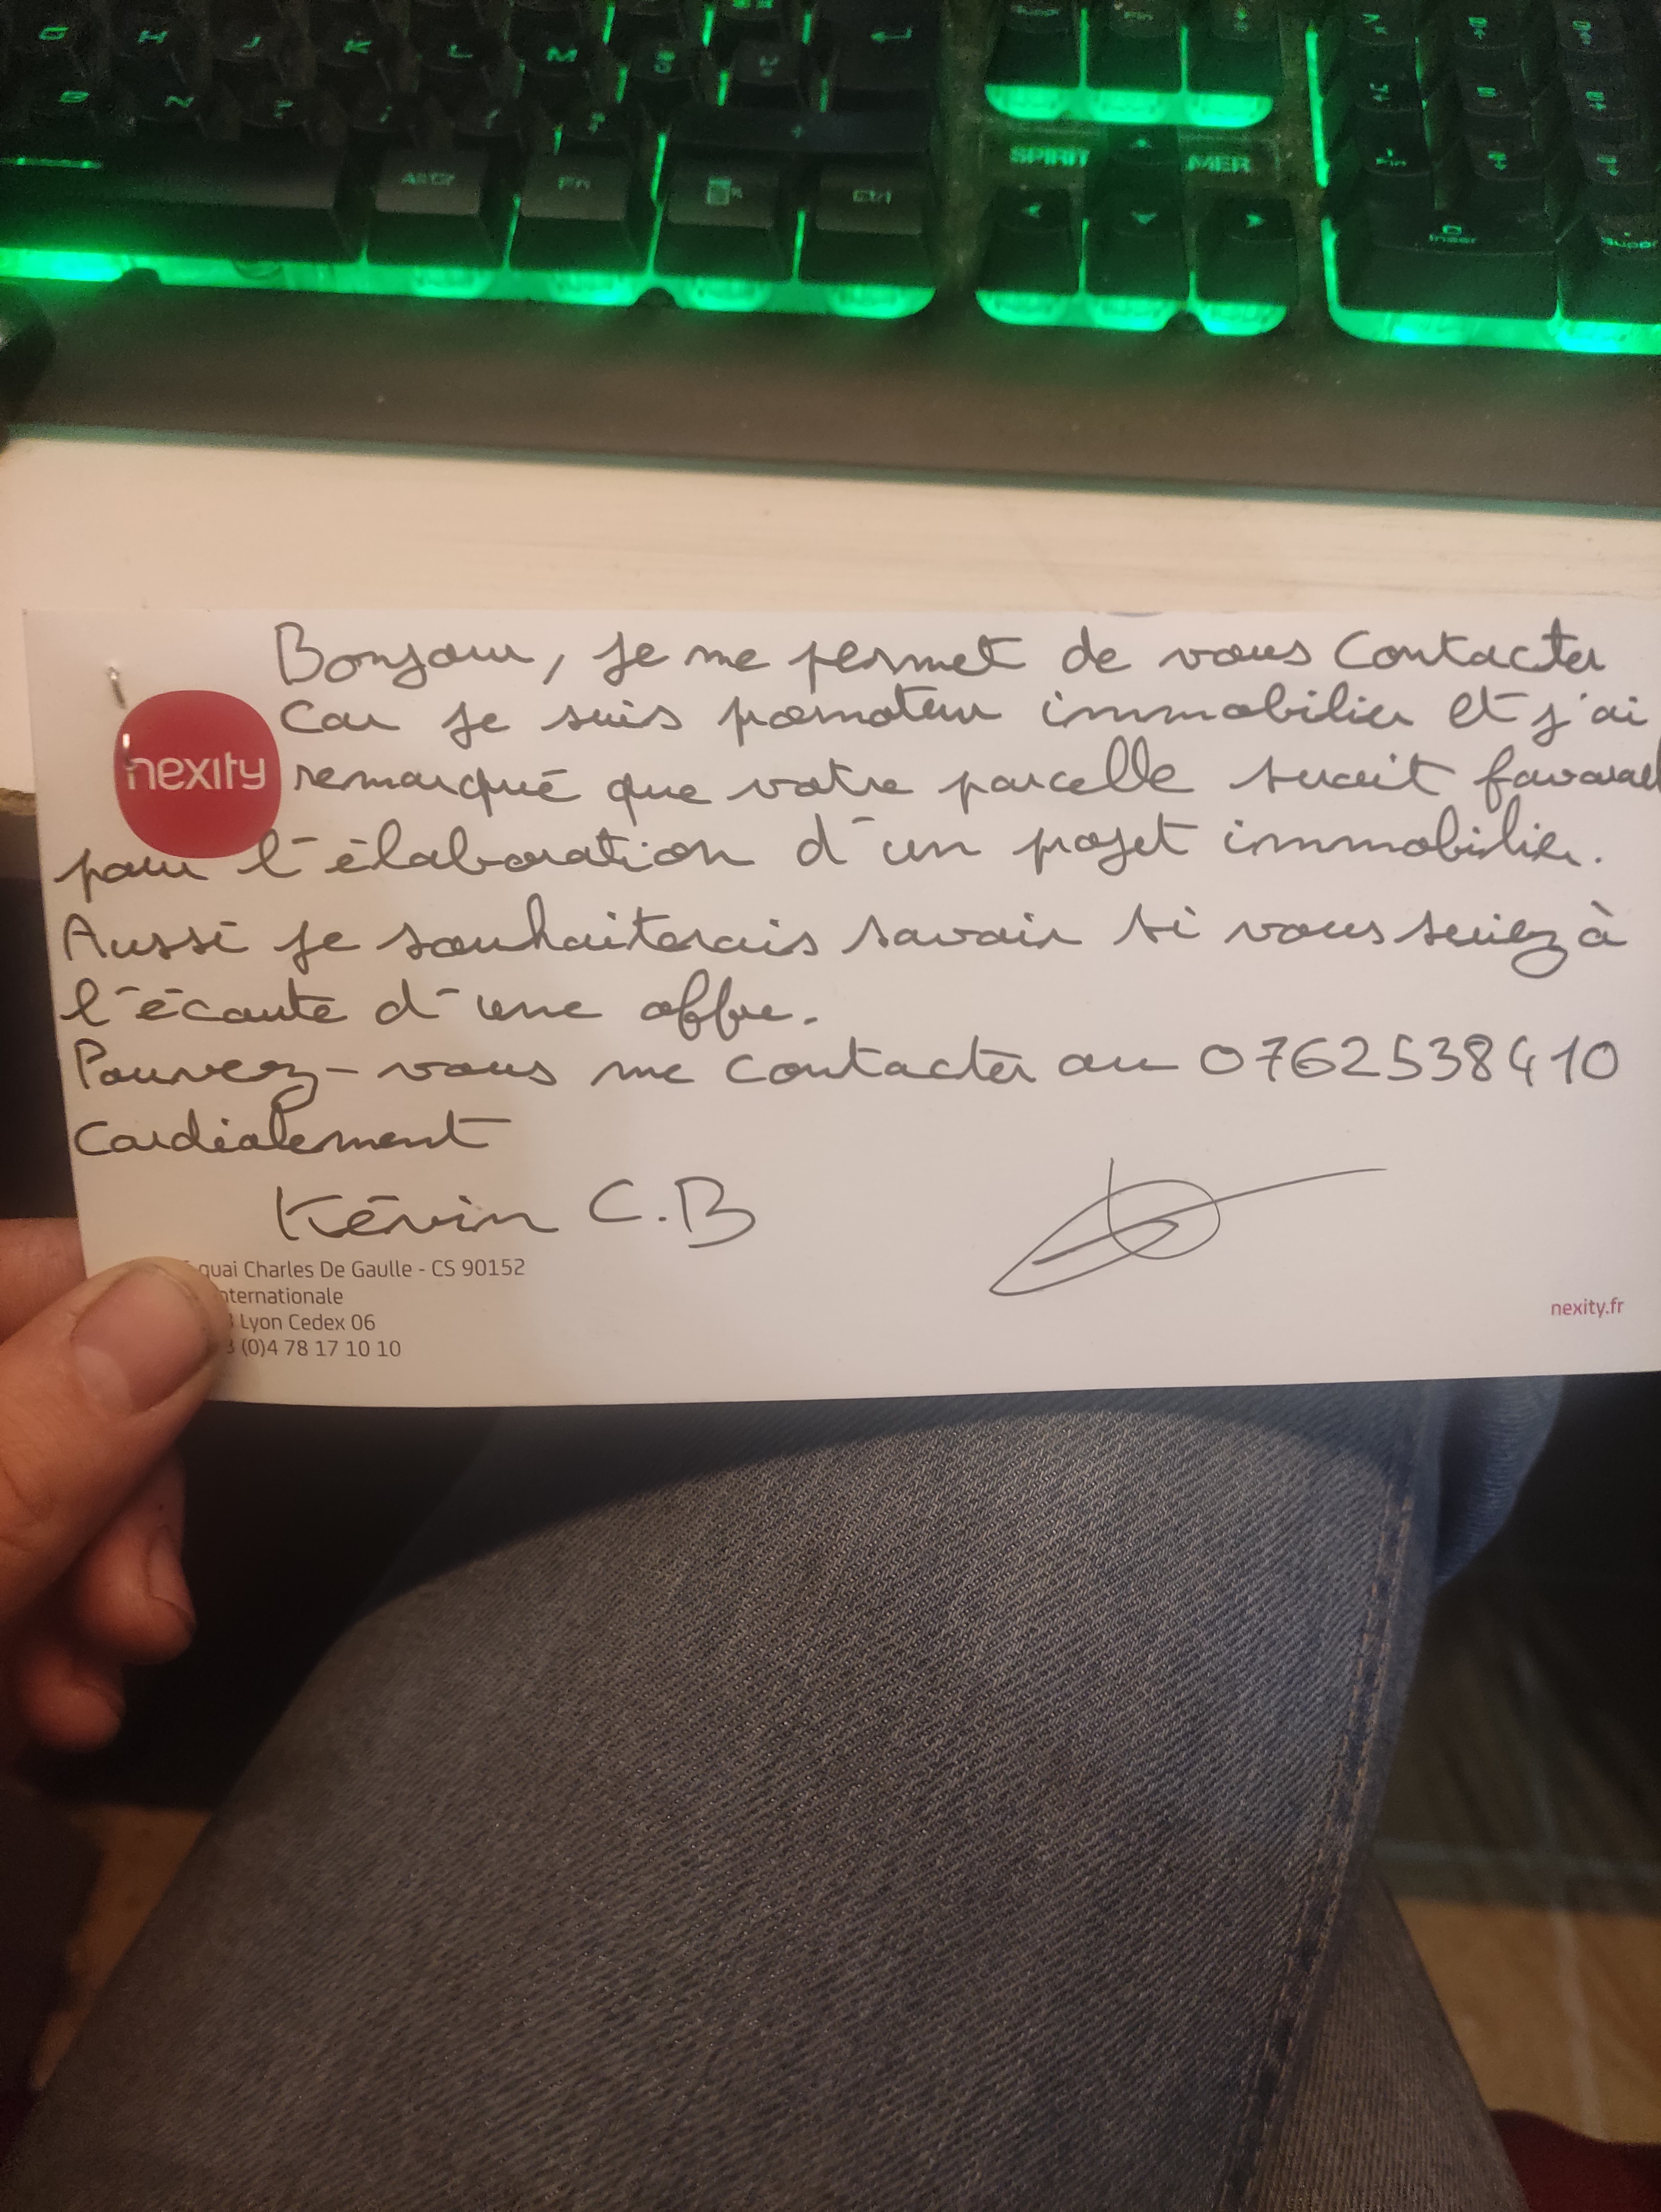 AltGr Fn Ctrl
SPIRIT MER
Bonjour, je me permet de vous contacter
Car je suis promoteur immobilier et j'ai
nexity
remarqué que votre parcelle serait
pour l'élaboration d'un projet immobilier.
Aussi je souhaiterais savoir si vous seriez à
l'écoute d'une offre.
Pouvez-vous me contacter au 0762538410
Cordialement
Kévin C.B
quai Charles De Gaulle - CS 90152
nternationale
Lyon Cedex 06
3 (0)4 78 17 10 10
nexity.fr